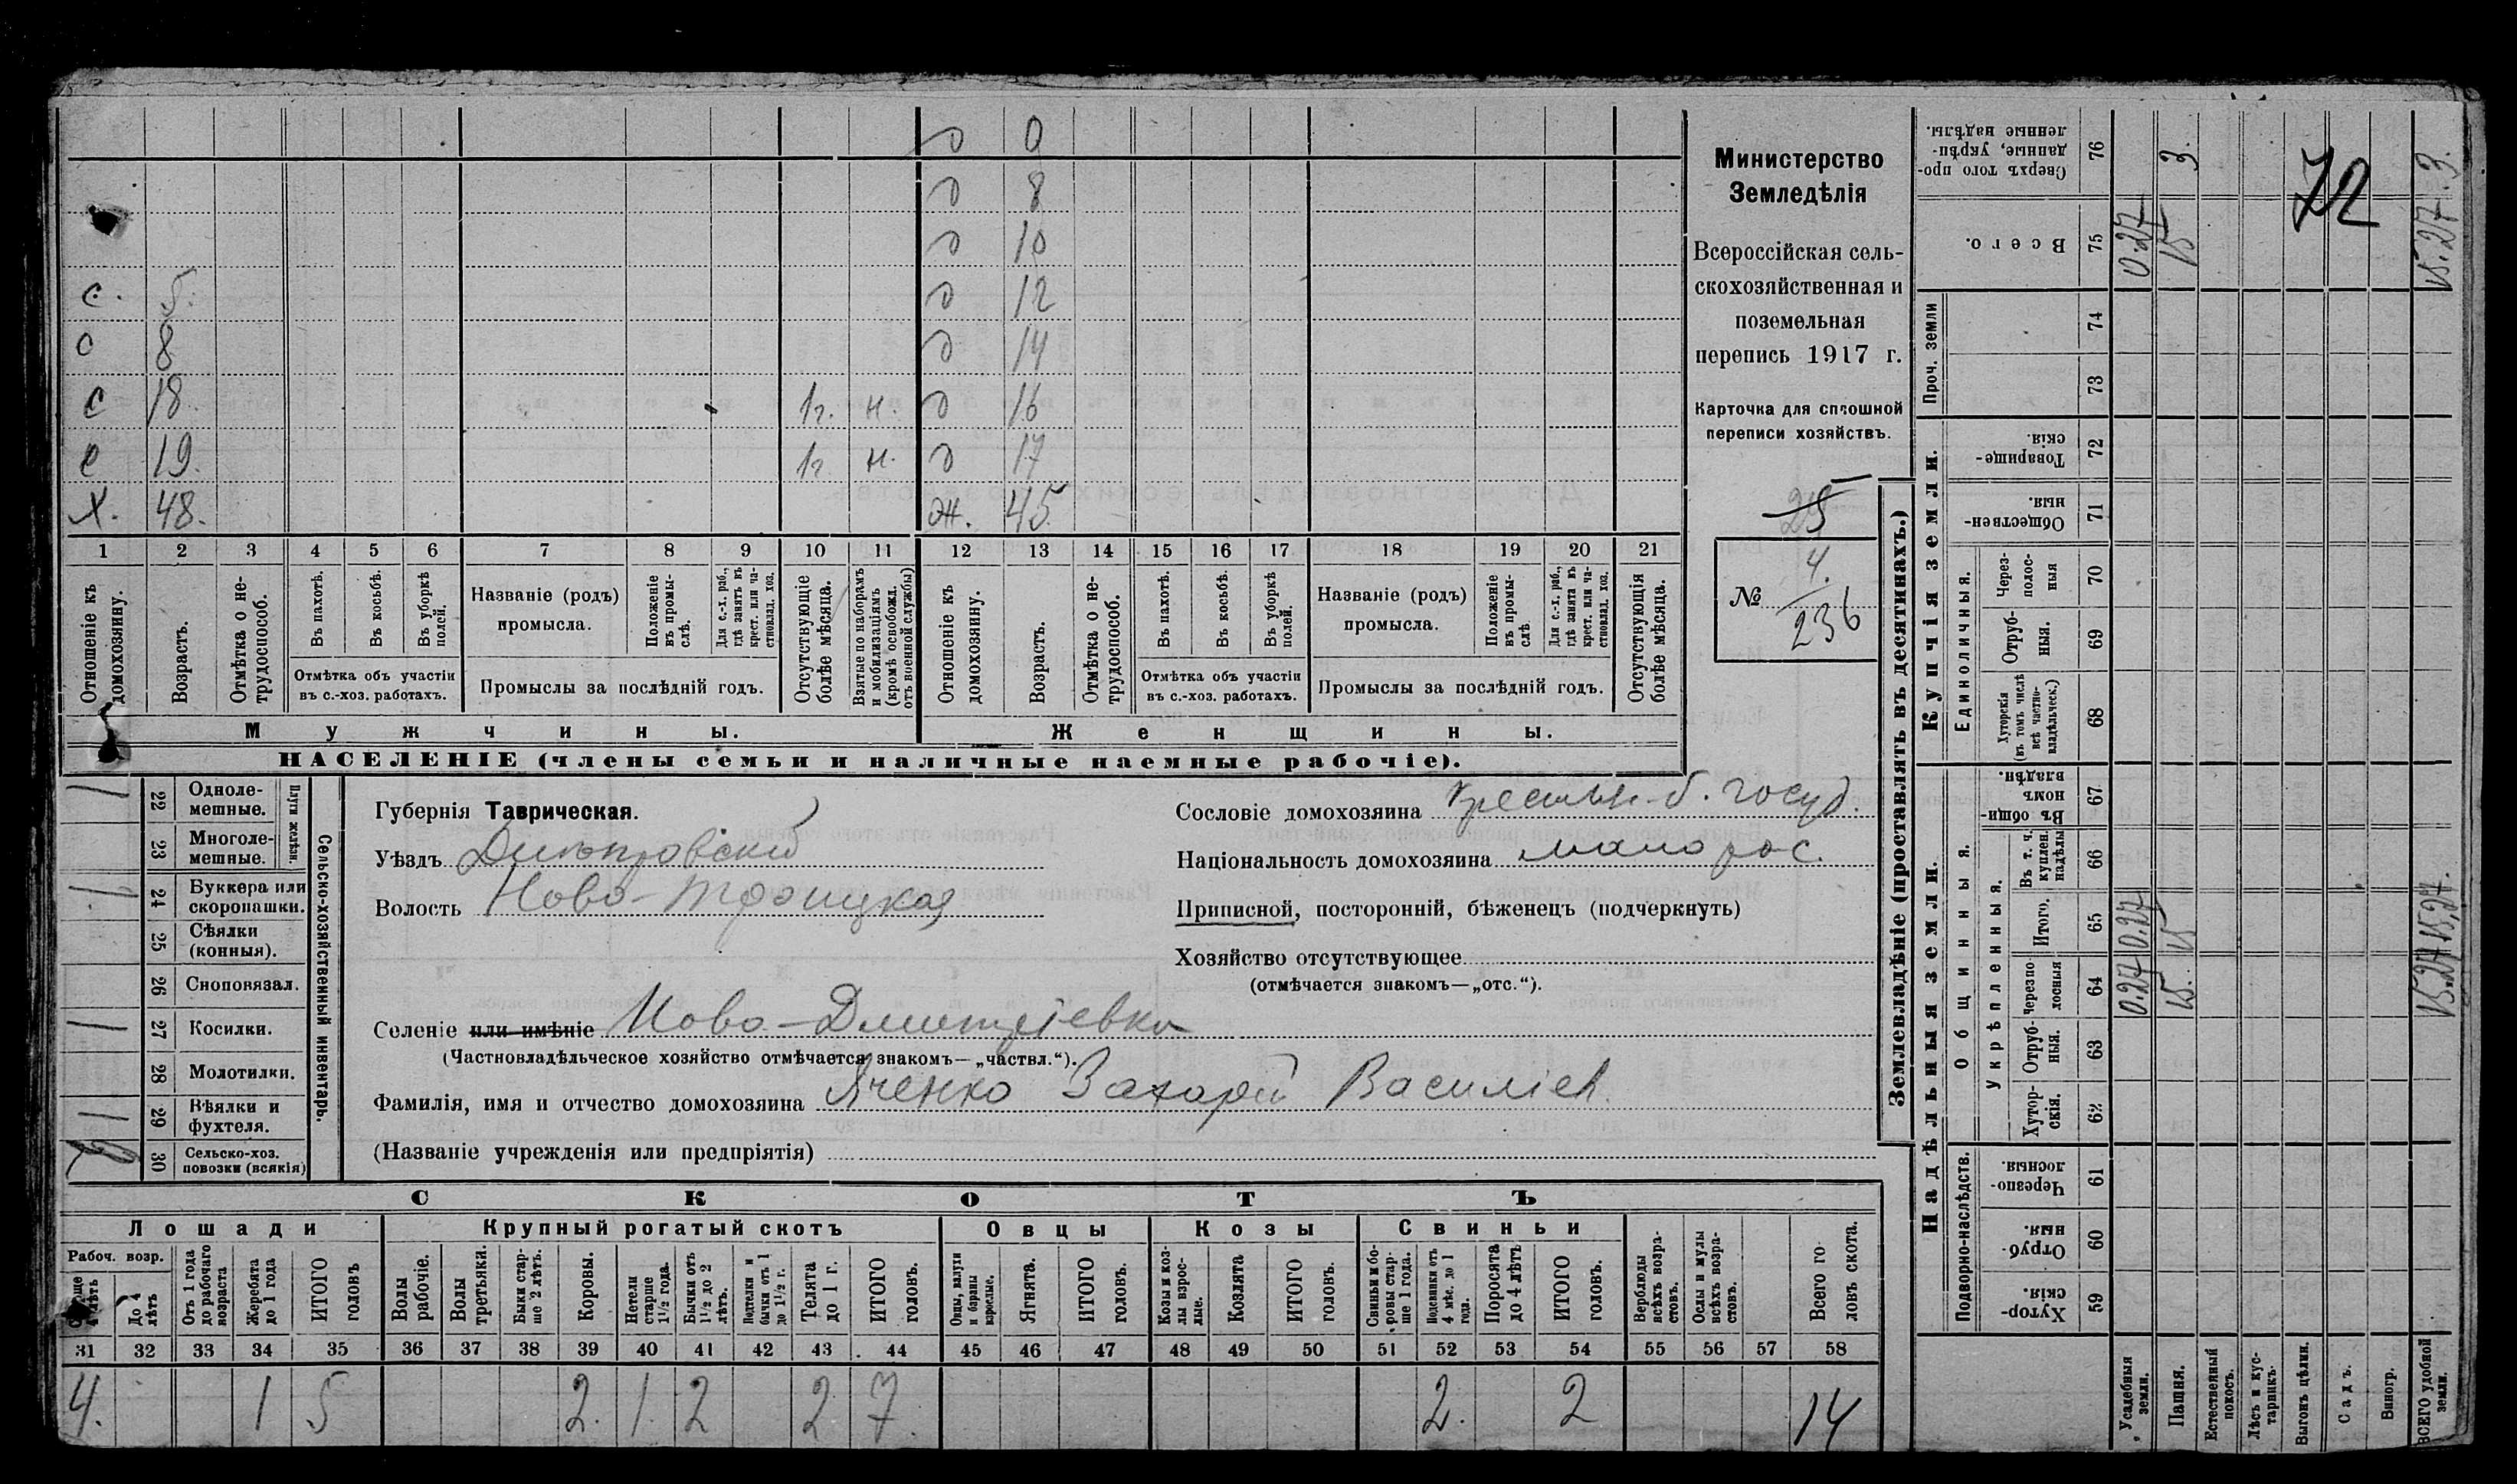 д 9
д 8
д 10
с. 5. д 12
с 8 д 14
с 18. 1г. н. д 16
с 19. 1г н. д 17
Х. 48. ж. 45
1 2 3 4 5 6 7 8 9 10 11 12 13 14 15 16 17 18 19 20 21
Отношеніе къ домохозяину.
Возрастъ.
Отмѣтка о нетрудоспособ.
Въ пахотѣ.
Въ косьбѣ.
Въ уборкѣ полей.
Отмѣтка объ участіи
въ с.-хоз. работахъ.
Названіе (родъ)
промысла.
Положеніе въ промыслѣ.
Для с.-х. раб., гдѣ занятъ въ крест. или частновлад. хоз.
Промыслы за послѣдній годъ.
Отсутствующіе болѣе мѣсяца.
Взятые по наборамъ и мобилизаціямъ (кромѣ освобожд. отъ военной службы)
Отношеніе къ домохозяину.
Возрастъ.
Отмѣтка о нетрудоспособ.
Въ пахотѣ.
Въ косьбѣ.
Въ уборкѣ полей.
Отмѣтка объ участіи
въ с.-хоз. работахъ.
Названіе (родъ)
промысла.
Положеніе въ промыслѣ
Для с.-х. раб., гдѣ занята въ крест. или частновлад. хоз.
Промыслы за послѣдній годъ.
Отсутствующія болѣе мѣсяца.
Мужчины.
Женщины.
НАСЕЛЕНІЕ (члены семьи и наличные наемные рабочіе).
Министерство
Земледѣлія
Всероссійская сель-
скохозяйственная и
поземельная
перепись 1917 г.
Карточка для сплошной
переписи хозяйствъ.
25
№ 4.
236
Сельско-хозяйственный инвентарь.
Плуги желѣзн.
22 Одноле-
мешные.
23 Многоле-
мешные.
24 Буккера или
скоропашки.
25 Сѣялки
(конныя).
26 Сноповязал.
27 Косилки.
28 Молотилки.
29 Вѣялки и
фухтеля.
30 Сельско-хоз.
повозки (всякія)
Губернія Таврическая.
Уѣздъ Днѣпровскій
Волость Ново-Троицкая
Сословіе домохозяина крестьян. б. госуд.
Національность домохозяина малорос.
Приписной, посторонній, бѣженецъ (подчеркнуть)
Хозяйство отсутствующее
(отмѣчается знакомъ—„отс.“).
Селеніе или имѣніе Ново-Дмитріевка
(Частновладѣльческое хозяйство отмѣчается знакомъ—„частвл.“).
Фамилія, имя и отчество домохозяина Яченко Захарій Василіев.
(Названіе учрежденія или предпріятія)
СКОТЪ
Лошади
Крупный рогатый скотъ
Овцы
Козы
Свиньи
Рабоч. возр.
До 4 лѣтъ
Отъ 1 года до рабочаго возраста
Жеребята до 1 года
ИТОГО головъ
Волы рабочіе.
Волы третьяки.
Быки старше 2 лѣтъ.
Коровы.
Нетели старше 1½ года.
Бычки отъ 1½ до 2 лѣтъ.
Подтелки и бычки отъ 1 до 1½ г.
Телята до 1 г.
ИТОГО головъ.
Овцы, валухи и бараны взрослые.
Ягнята.
ИТОГО головъ.
Козы и козлы взрослые.
Козлята
ИТОГО головъ.
Свиньи и боровы старше 1 года.
Подсвинки отъ 4 мѣс. до 1 года.
Поросята до 4 лѣтъ
ИТОГО головъ.
Верблюды всѣхъ возрастовъ.
Ослы и мулы всѣхъ возрастовъ.
Всего головъ скота.
31 32 33 34 35 36 37 38 39 40 41 42 43 44 45 46 47 48 49 50 51 52 53 54 55 56 57 58
4. 1 5 2. 1. 2 2 7. 2. 2 14
Землевладѣніе (проставлять въ десятинахъ.)
Купчія земли.
Надѣльныя земли.
Сверхъ того проданные, укрѣпленные надѣлы. 76
Всего. 75
Проч. земли
74
73
Товарищескія. 72
Общественныя. 71
Единоличныя.
Черезполосныя 70
Отрубныя. 69
Хуторскія (въ томъ числѣ всѣ частновладѣльческ.) 68
Общинныя.
Въ общинномъ владѣн. 67
Укрѣпленныя.
Въ т. ч. куплен. надѣлы 66
Итого. 65
Черезполосныя 64
Отрубныя. 63
Хуторскія. 62
Подворно-наслѣдств.
Черезполосныя. 61
Отрубныя. 60
Хуторскія. 59
Усадебныя земли. 0.27 0.27 0.27
Пашня. 15. 15 15 3.
Естественный покосъ.
Лѣсъ и кустарникъ.
Выгонъ цѣлин.
Садъ.
Виногр.
ВСЕГО удобной земли. 15.27 15.27. 15.27. 3.
72